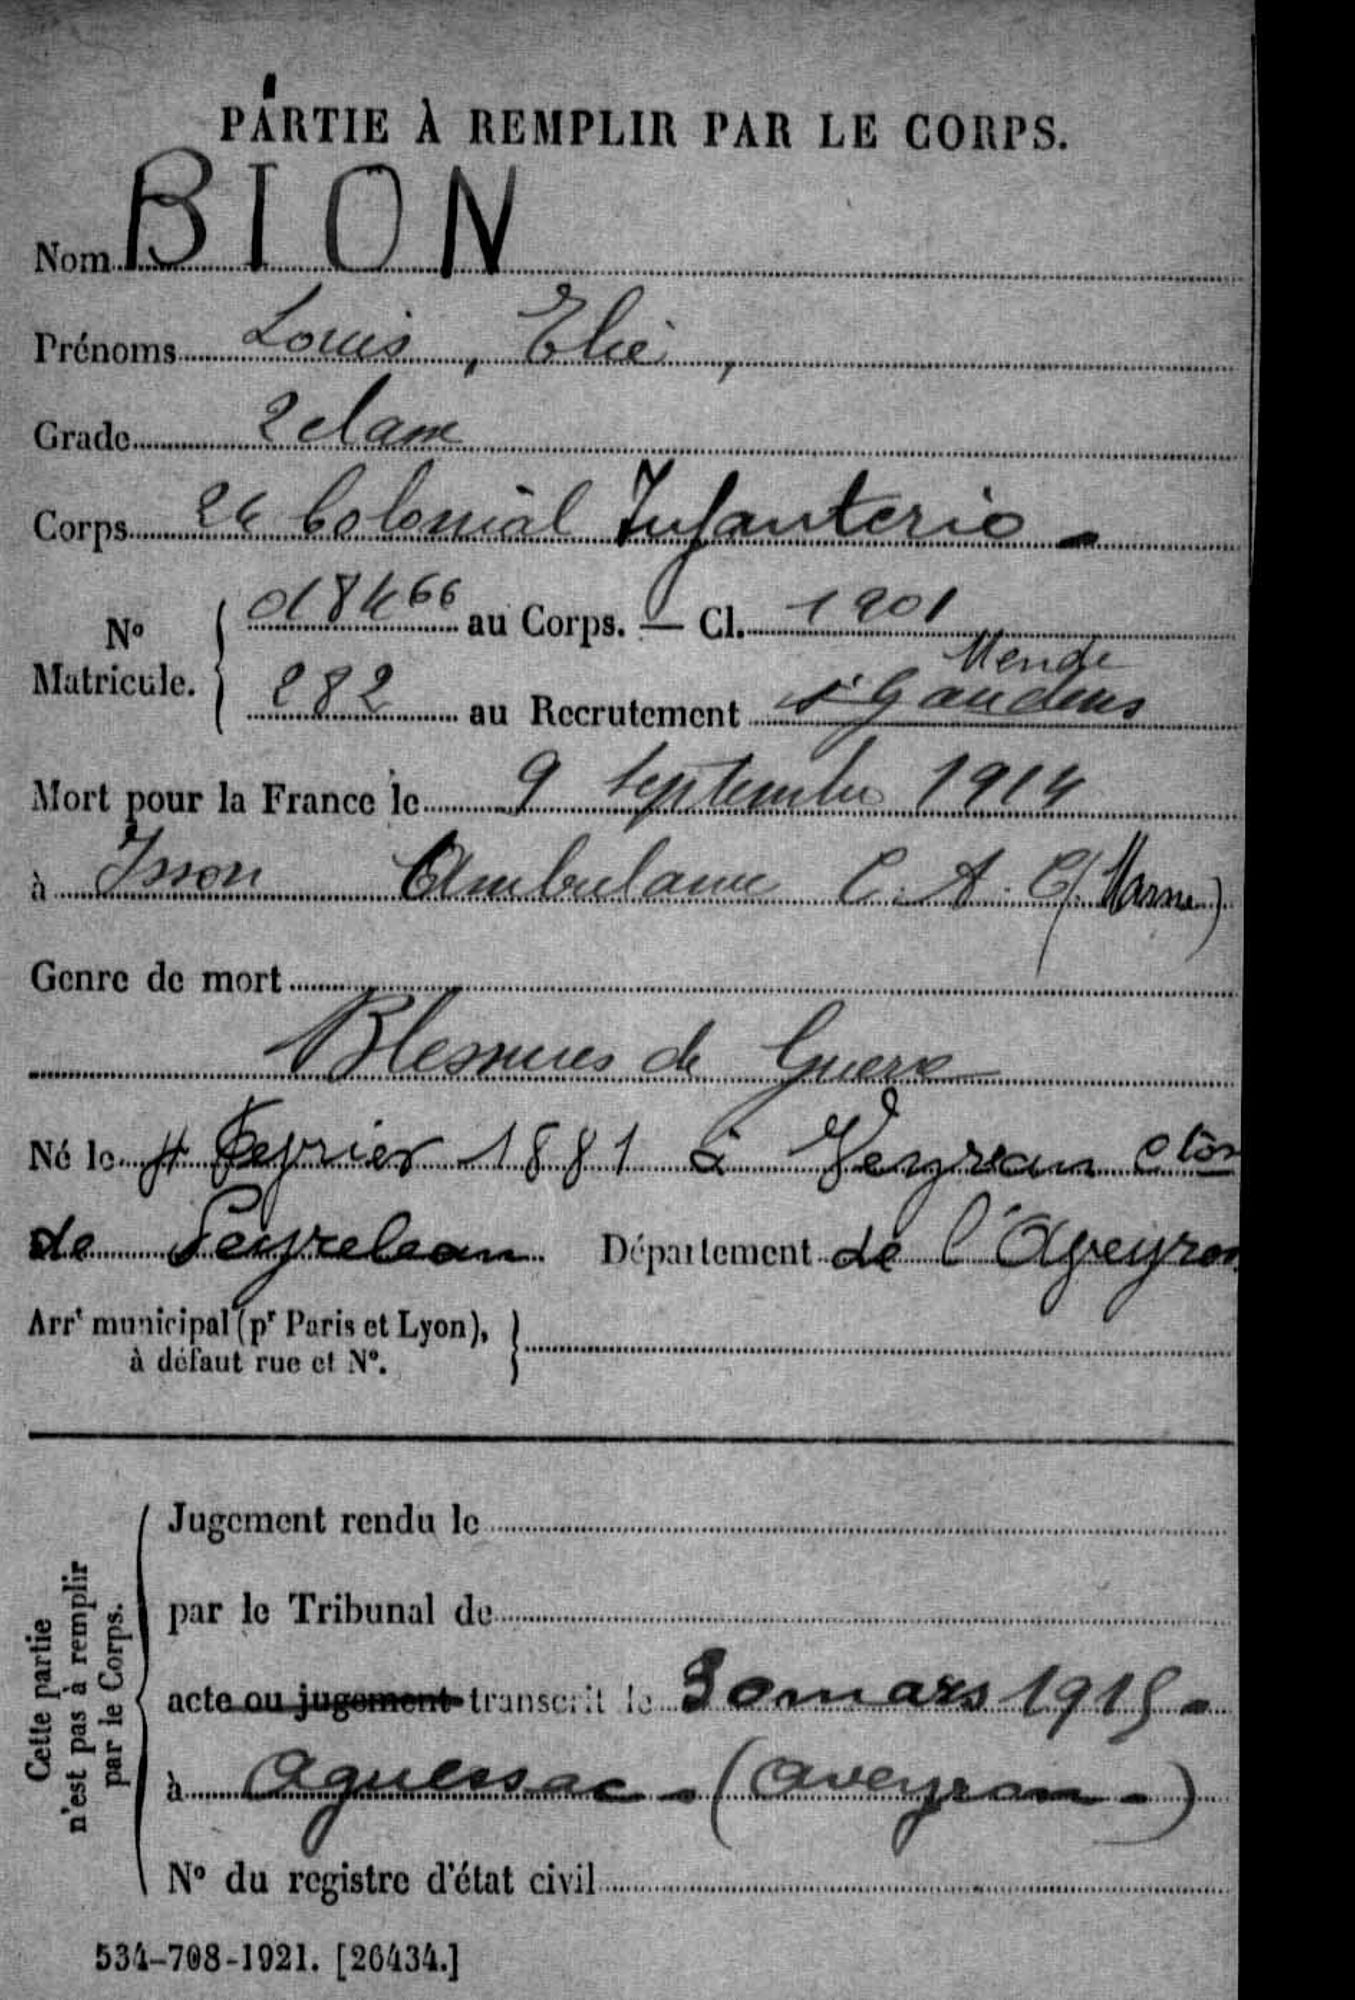 PARTIE À REMPLIR PAR LE CORPS.
Nom BION
Prénoms Louis, Elie,
Grade 2 classe
Corps 24 Colonial Infanterie
No Matricule. { 018466 au Corps. — Cl. 1901
Mende
282 au Recrutement St Gaudens
Mort pour la France le 9 Septembre 1914
à Isson Ambulance C. A. C (Marne)
Genre de mort
Blessures de Guerre
Né le 4 Février 1881 à Veyreau cton
de Peyreleau Département de l'Aveyron
Arrt municipal (pr Paris et Lyon), }
à défaut rue et No.
Cette partie
n'est pas à remplir
par le Corps.
Jugement rendu le
par le Tribunal de
acte ou jugement transcrit le 30 mars 1915
à Aguessac - (Aveyron - )
No du registre d'état civil
534-708-1921. [26434.]